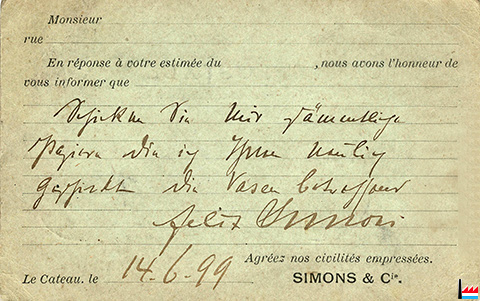 Monsieur
rue
En réponse à votre estimée du , nous avons l'honneur de
vous informer que
Schicken Sie mir sämmtliche
Papiere die ich Ihnen neulich
geschickt die Vasen betreffend
Felix Simons
Agréez nos civilités empressées.
Le Cateau, le 14.6.99 SIMONS & Cie.